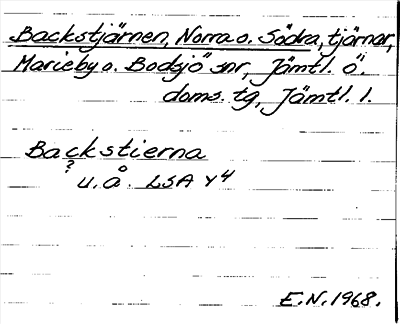 Backstjärnen, Norra o. Södra, tjärnar,
Marieby o. Bodsjö snr, Jämtl. ö.
doms. tg, Jämtl. l.
Backstierna
?
u. å. LSA Y4
E.N. 1968.